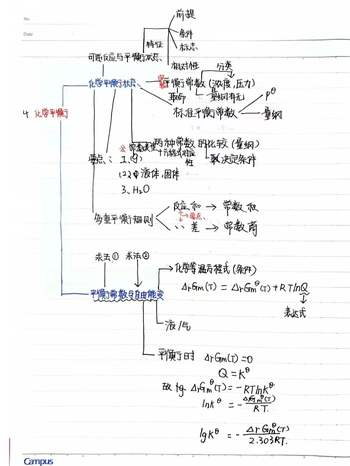 No.
Date
前提
条件
特征
标志
可逆反应与平衡状态
相对性
分类
化学平衡状态
平衡常数 (浓度,压力)
量纲有无
标准平衡常数
p^θ
量纲
4. 化学平衡
两种常数的比较 (量纲)
决定条件
要点:
1、
(2) 液体,固体
3、H₂O
多重平衡规则
反应和 → 常数
差 → 常数商
求法① 求法②
化学等温方程式 (条件)
平衡常数与自由能变
ΔrGm(T) = ΔrGm^θ(T) + RTlnQ
表达式
液/气
平衡时 ΔrGm(T)=0
Q = K^θ
故 ΔrGm^θ(T) = -RTlnK^θ
lnK^θ = -ΔrGm^θ(T)/RT.
lgK^θ = -ΔrGm^θ(T)/2.303RT.
Campus